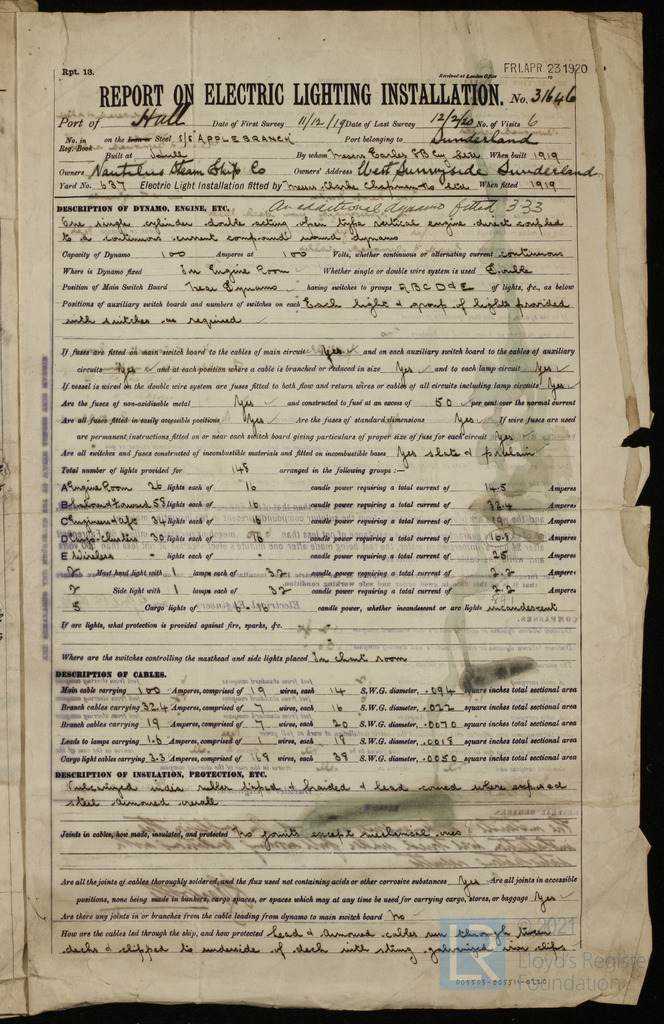 Rpt. 13.
Received at London Office
FRI. APR. 23 1920
REPORT ON ELECTRIC LIGHTING INSTALLATION. No. 31646
Port of Hull Date of First Survey 11/12/19 Date of Last Survey 12/2/20 No. of Visits 6
No. in Reg. Book on the Iron or Steel S/S "APPLEBRANCH" Port belonging to Sunderland
Built at Hull By whom Messrs Earles SB Coy Ltd When built 1919
Owners Nautilus Steam Ship Co Owners' Address West Sunnyside Sunderland
Yard No. 637 Electric Light Installation fitted by Messrs Clarke Chapman & Co Ltd When fitted 1919
DESCRIPTION OF DYNAMO, ENGINE, ETC. An additional dynamo fitted 333
One single cylinder double acting open type vertical engine direct coupled
to a continuous current compound wound dynamo
Capacity of Dynamo 100 Amperes at 100 Volts, whether continuous or alternating current continuous
Where is Dynamo fixed In Engine Room Whether single or double wire system is used Double
Position of Main Switch Board Near Dynamo having switches to groups A B C D & E of lights, &c., as below
Positions of auxiliary switch boards and numbers of switches on each Each light & group of lights provided
with switches as required
If fuses are fitted on main switch board to the cables of main circuit Yes and on each auxiliary switch board to the cables of auxiliary
circuits Yes and at each position where a cable is branched or reduced in size Yes and to each lamp circuit Yes
If vessel is wired on the double wire system are fuses fitted to both flow and return wires or cables of all circuits including lamp circuits Yes
Are the fuses of non-oxidizable metal Yes and constructed to fuse at an excess of 50 per cent over the normal current
Are all fuses fitted in easily accessible positions Yes Are the fuses of standard dimensions Yes If wire fuses are used
are permanent instructions fitted on or near each switch board giving particulars of proper size of fuse for each circuit Yes
Are all switches and fuses constructed of incombustible materials and fitted on incombustible bases Yes slate & porcelain
Total number of lights provided for 148 arranged in the following groups :—
A Engine Room 26 lights each of 16 candle power requiring a total current of 14.5 Amperes
B Saloon & Forward 58 lights each of 16 candle power requiring a total current of 32.4 Amperes
C Engineers & Aft 34 lights each of 16 candle power requiring a total current of 19 Amperes
D Cargo Clusters 30 lights each of 16 candle power requiring a total current of 16.8 Amperes
E Wireless lights each of candle power requiring a total current of 25 Amperes
2 Mast head light with 1 lamps each of 32 candle power requiring a total current of 2.2 Amperes
2 Side light with 1 lamps each of 32 candle power requiring a total current of 2.2 Amperes
5 Cargo lights of candle power, whether incandescent or arc lights incandescent
If arc lights, what protection is provided against fire, sparks, &c.
Where are the switches controlling the masthead and side lights placed In chart room
DESCRIPTION OF CABLES.
Main cable carrying 100 Amperes, comprised of 19 wires, each 14 S.W.G. diameter, .094 square inches total sectional area
Branch cables carrying 32.4 Amperes, comprised of 7 wires, each 16 S.W.G. diameter, .022 square inches total sectional area
Branch cables carrying 19 Amperes, comprised of 7 wires, each 20 S.W.G. diameter, .0070 square inches total sectional area
Leads to lamps carrying 1.6 Amperes, comprised of 1 wires, each 18 S.W.G. diameter, .0018 square inches total sectional area
Cargo light cables carrying 3.3 Amperes, comprised of 168 wires, each 38 S.W.G. diameter, .0050 square inches total sectional area
DESCRIPTION OF INSULATION, PROTECTION, ETC.
Vulcanized india rubber taped & braided & lead covered where exposed
steel armoured overall
Joints in cables, how made, insulated, and protected No joints except mechanical ones
Are all the joints of cables thoroughly soldered, and the flux used not containing acids or other corrosive substances Yes Are all joints in accessible
positions, none being made in bunkers, cargo spaces, or spaces which may at any time be used for carrying cargo, stores, or baggage Yes
Are there any joints in or branches from the cable leading from dynamo to main switch board No
How are the cables led through the ship, and how protected Lead & armoured cables run through tween
decks & clipped to underside of deck with strong galvanised iron clips
© 2021
Lloyd's Register
Foundation
005503-005511-0220